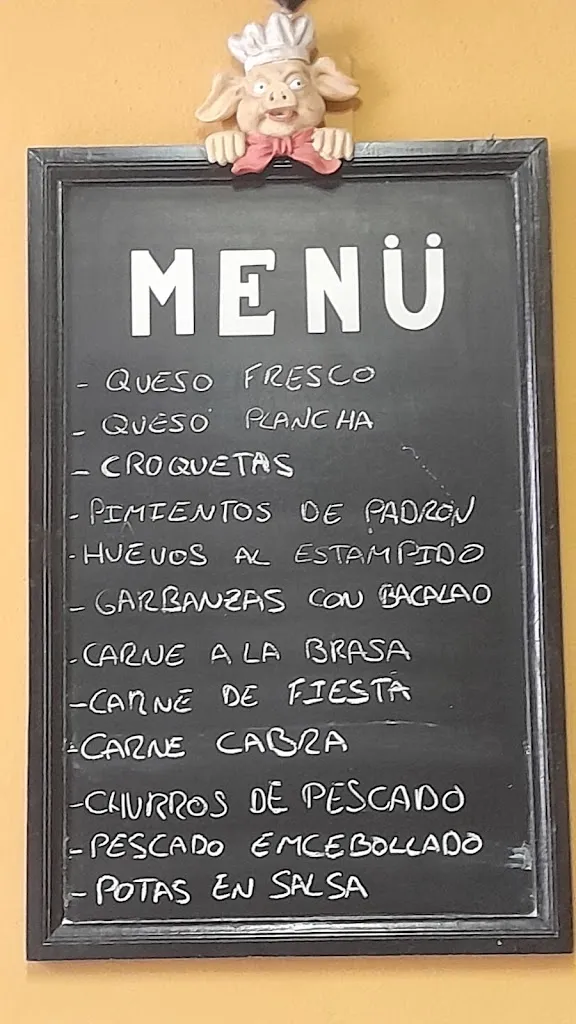 MENÜ
- QUESO FRESCO
- QUESO PLANCHA
- CROQUETAS
- PIMIENTOS DE PADRÓN
- HUEVOS AL ESTAMPIDO
- GARBANZAS CON BACALAO
- CARNE A LA BRASA
- CARNE DE FIESTA
- CARNE CABRA
- CHURROS DE PESCADO
- PESCADO EMCEBOLLADO
- POTAS EN SALSA